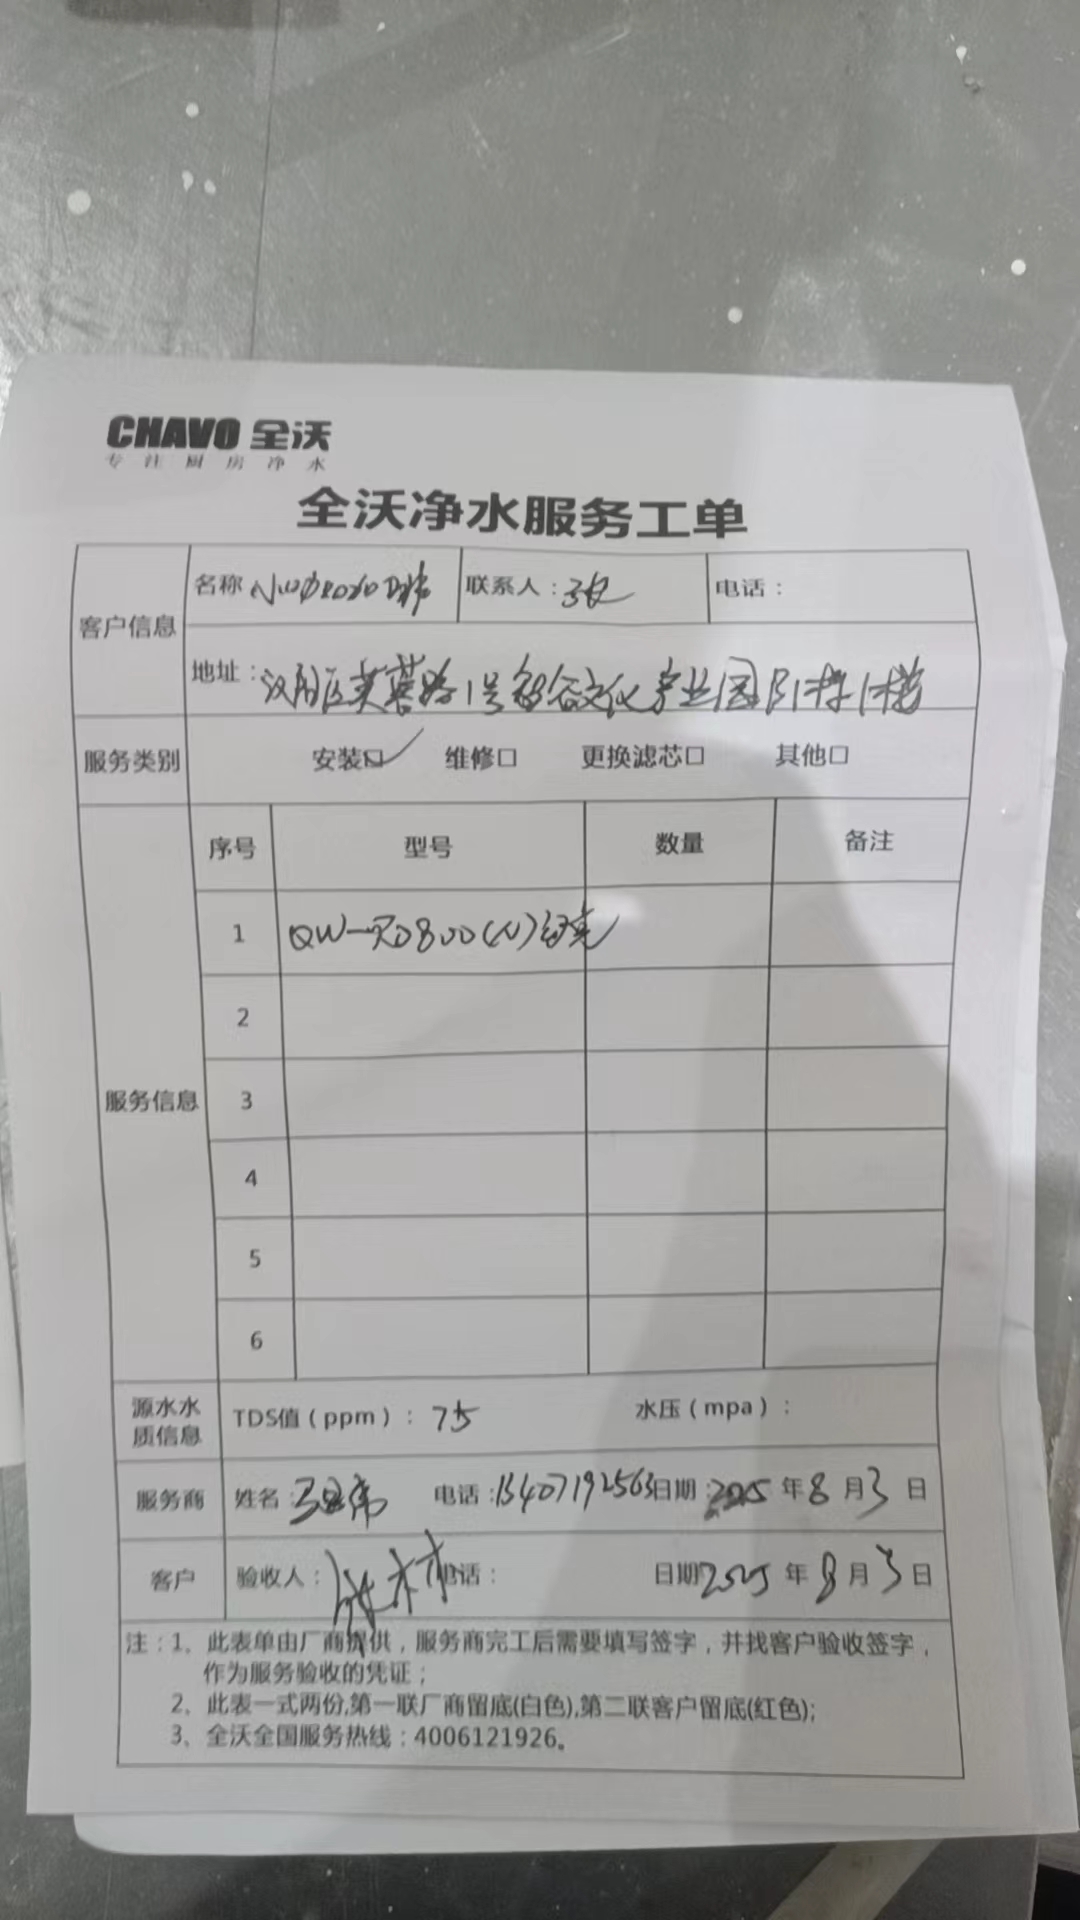 CHAVO 全沃
专注厨房净水
全沃净水服务工单
客户信息
名称
联系人：
电话：
地址：汉阳区芙蓉路1号 文化产业园B1栋1楼
服务类别 安装☑ 维修口 更换滤芯口 其他口
服务信息
序号 型号 数量 备注
1 QW-RO800(N)
2
3
4
5
6
源水水质信息
TDS值（ppm）：75 水压（mpa）：
服务商 姓名： 电话：13407192563 日期：2025年8月3日
客户 验收人： 电话： 日期2025年8月3日
注：1、此表单由厂商提供，服务商完工后需要填写签字，并找客户验收签字，
作为服务验收的凭证；
2、此表一式两份,第一联厂商留底(白色),第二联客户留底(红色);
3、全沃全国服务热线：4006121926。